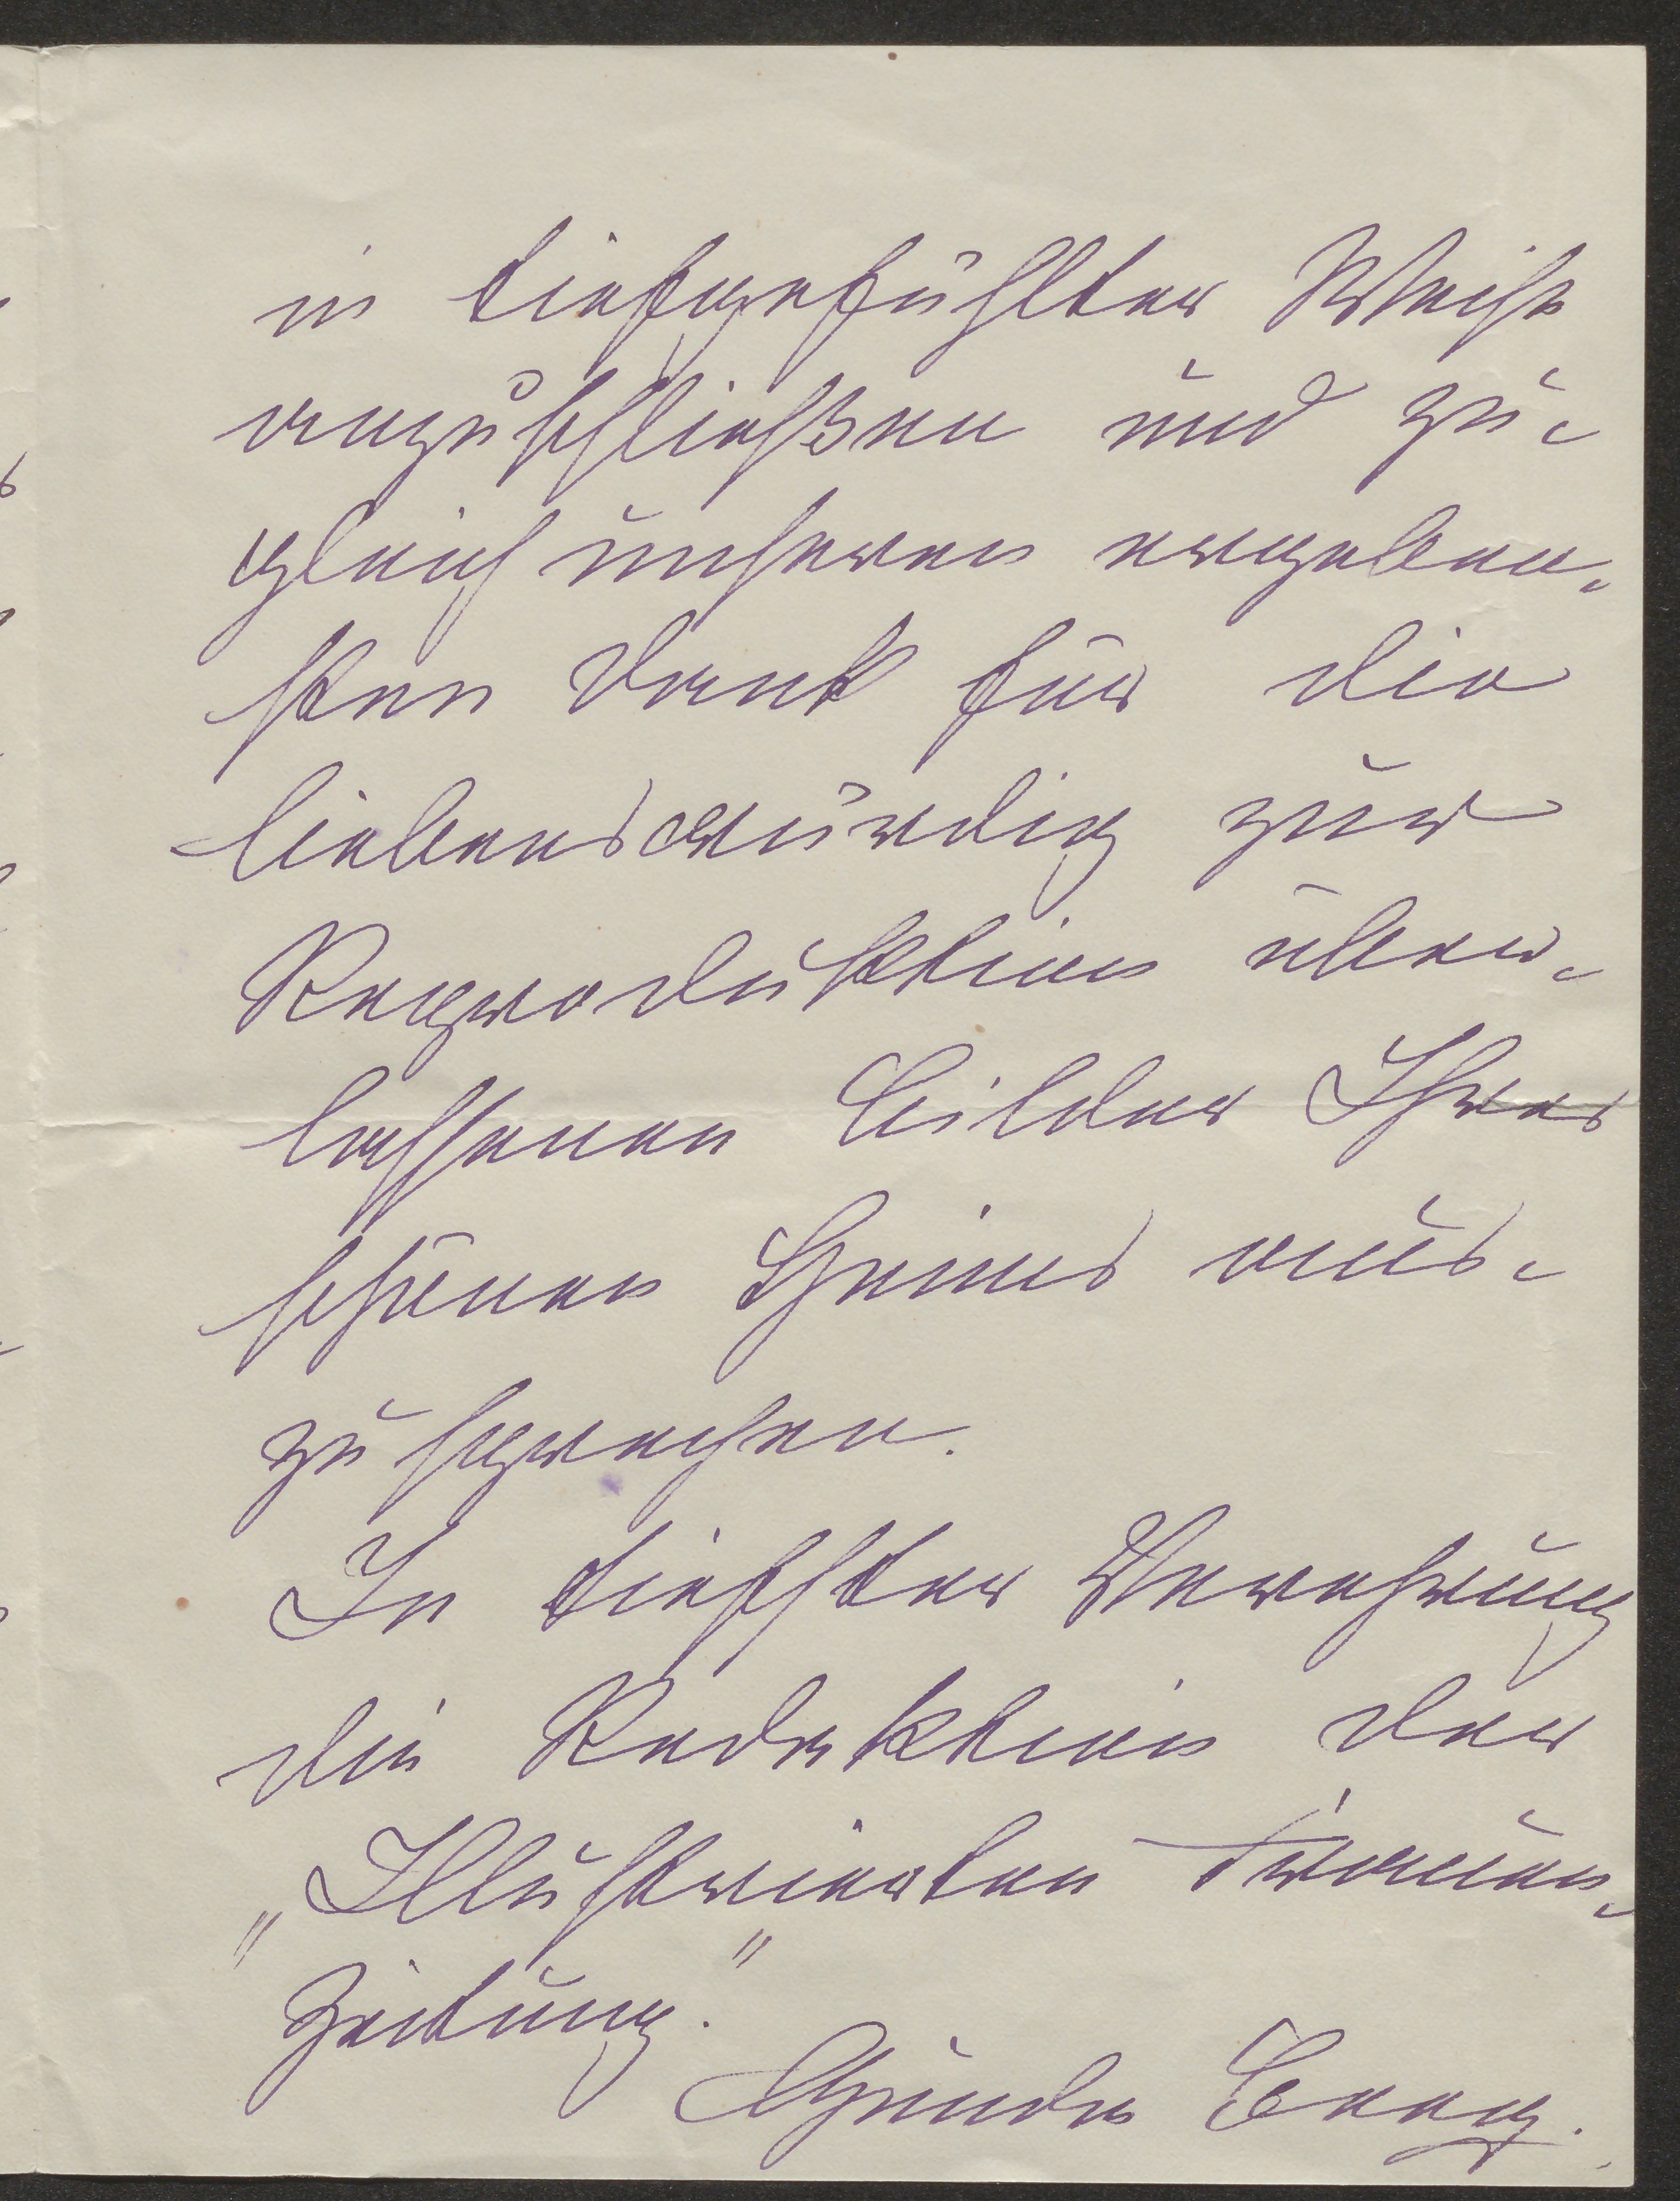 in tiefgefühlter Weise
anzuschließen und zu-
gleich unseren ergeben-
sten Dank für die
liebenswürdig zur
Reproduktion über-
lassenen Bilder Ihres
schönen Heims aus-
zusprechen.
In tiefster Verehrung
die Redaktion der
„Illustrierten Frauen-
Zeitung."
Gunda Beeg.